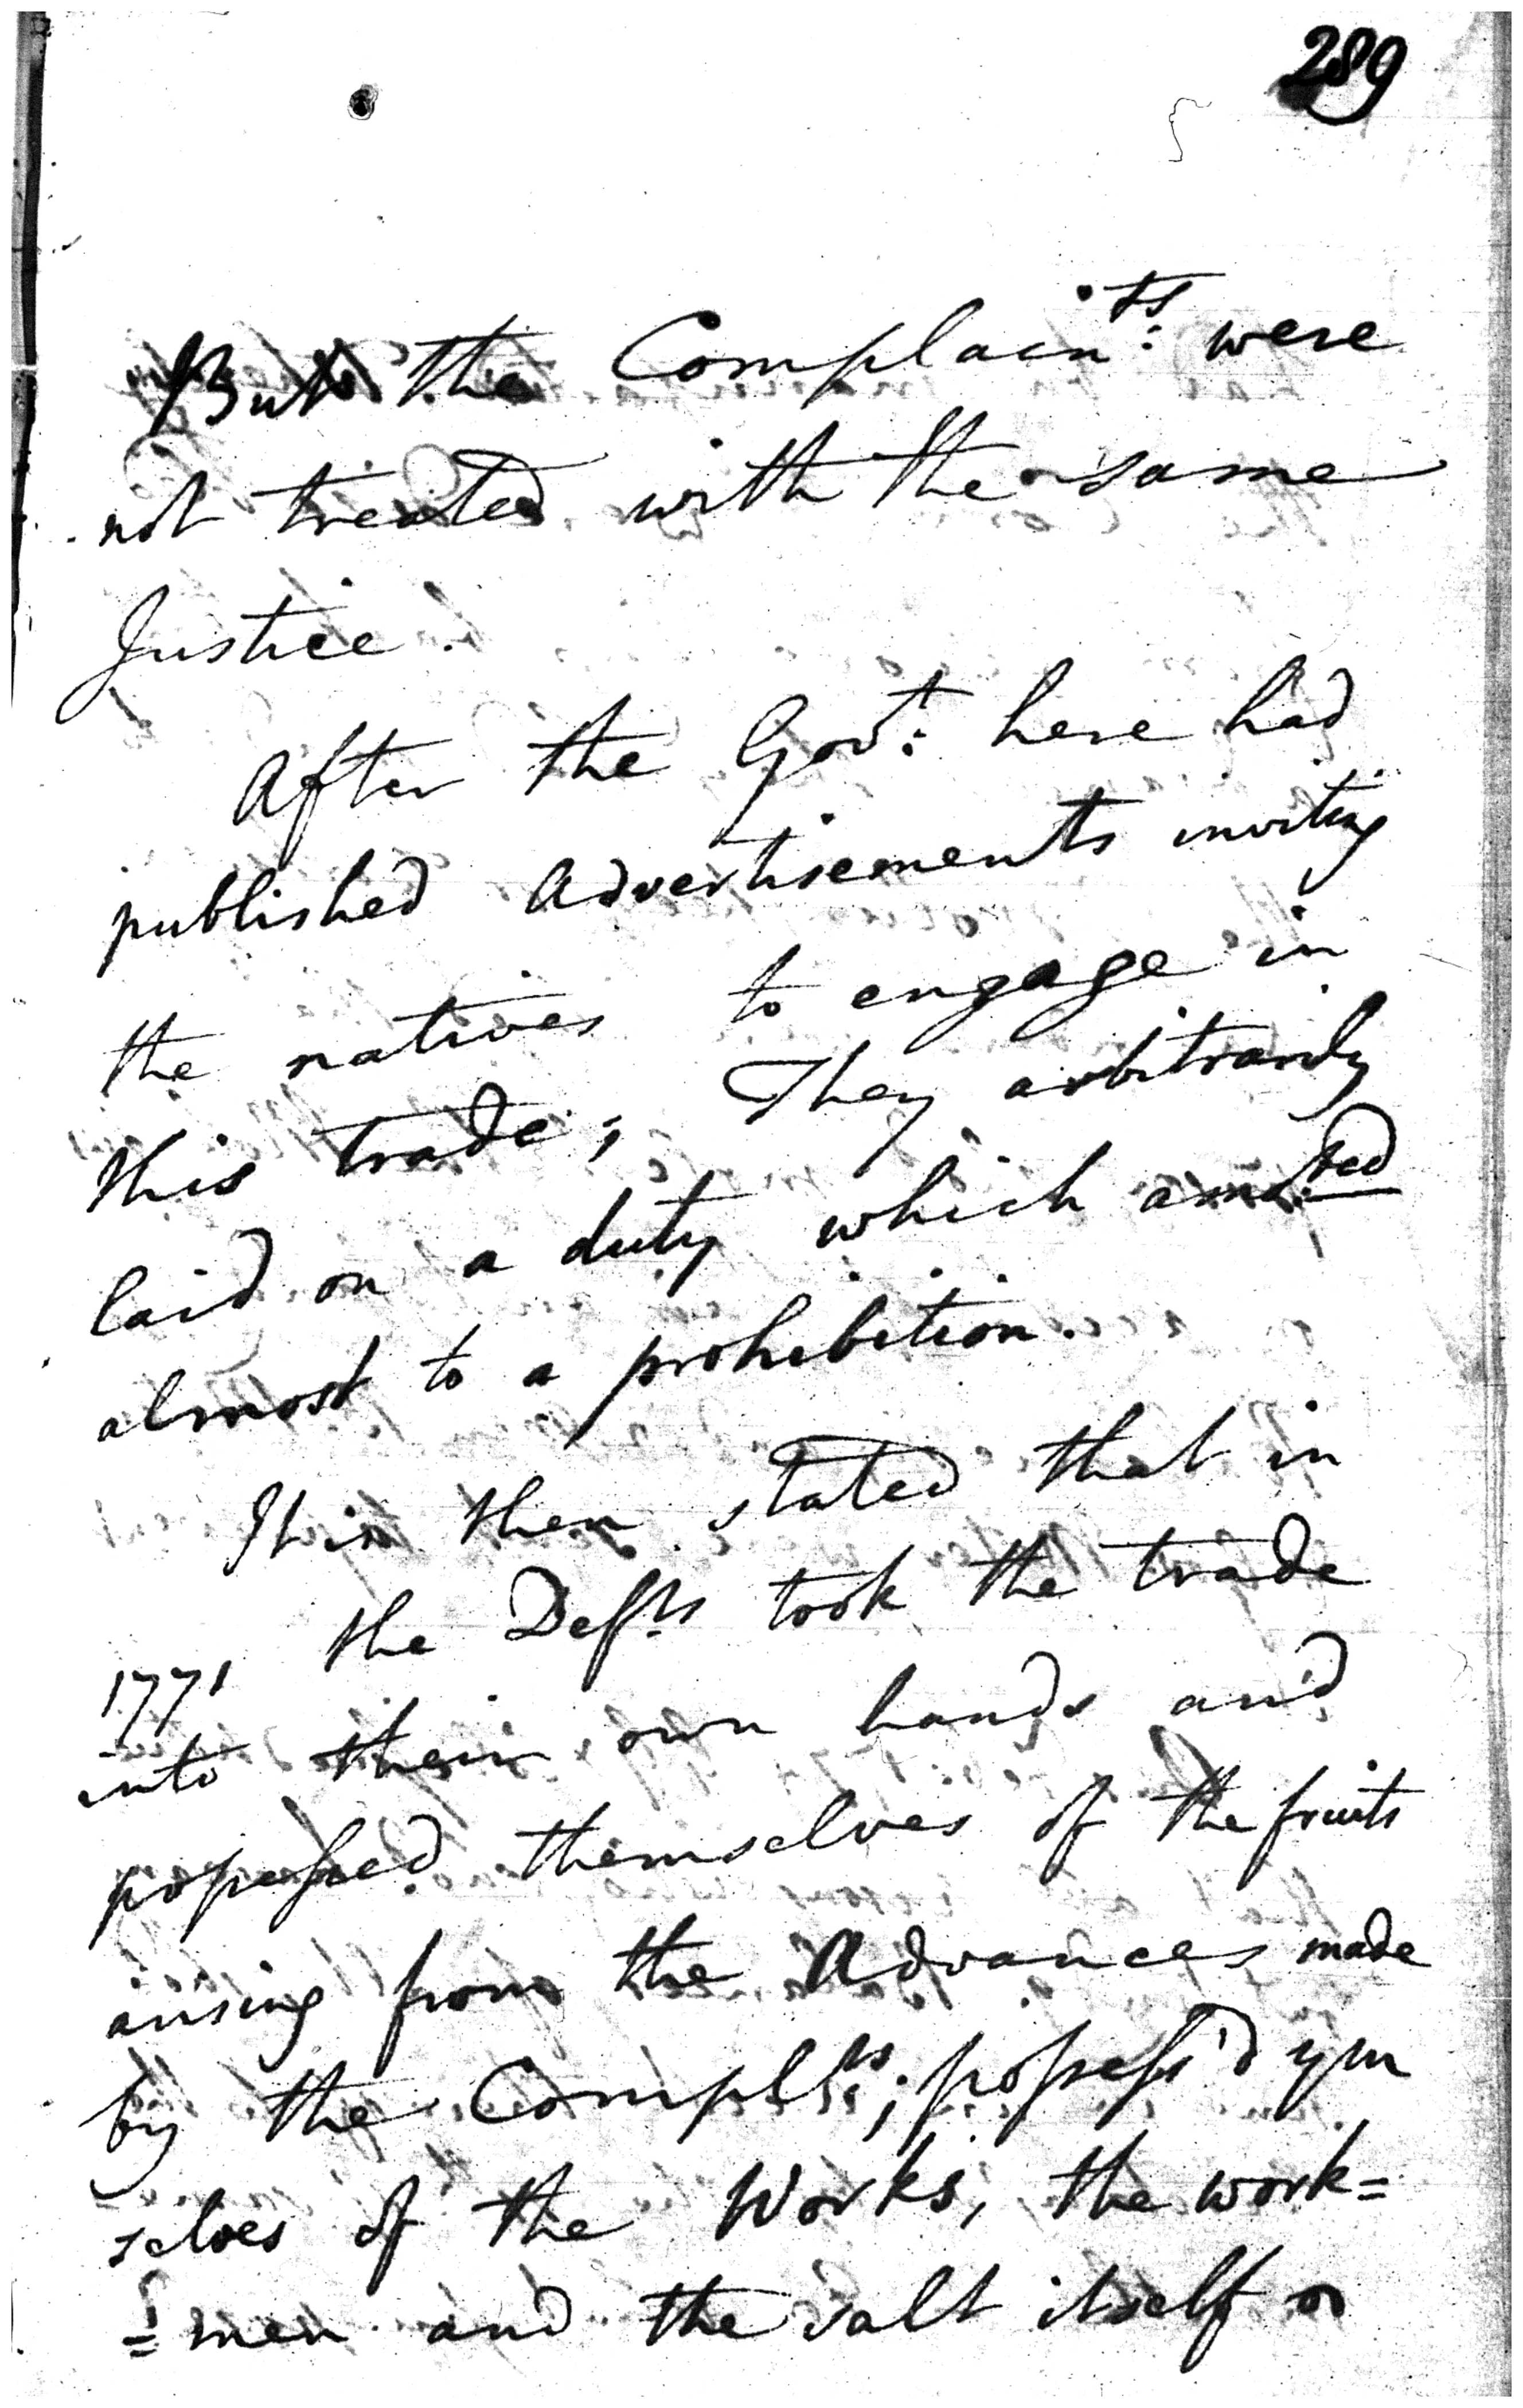 289
But the Complain.ts: were
not treated with the same
Justice.
After the Govt: here had
published Advertisements inviting
the natives to engage in
this trade; They arbitrarily
laid on a duty which amo.ted
almost to a prohibition.
It is then stated that in
1771 the Defts took the trade
into their own hands and
possessed themselves of the fruits
arising from the Advances made
by the Complts; possess'd ym
selves of the Works, the work=
=men and the salt itself or